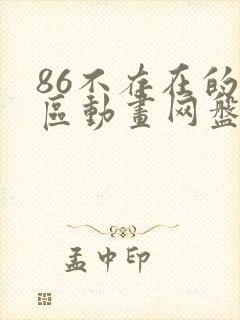 86不存在的
區動畫网盤
孟中印